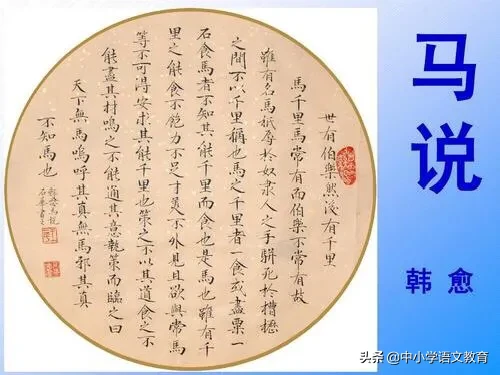 马说
韩愈
世有伯樂然後有千里
馬千里馬常有而伯樂不常有故
雖有名馬祇辱於奴隸人之手駢死於槽櫪
之間不以千里稱也馬之千里者一食或盡粟一
石食馬者不知其能千里而食也是馬也雖有千
里之能食不飽力不足才美不外見且欲與常馬
等不可得安求其能千里也策之不以其道食之不
能盡其材鳴之不能通其意執策而臨之曰
天下無馬嗚呼其真無馬邪其真
不知馬也
头条 @中小学语文教育